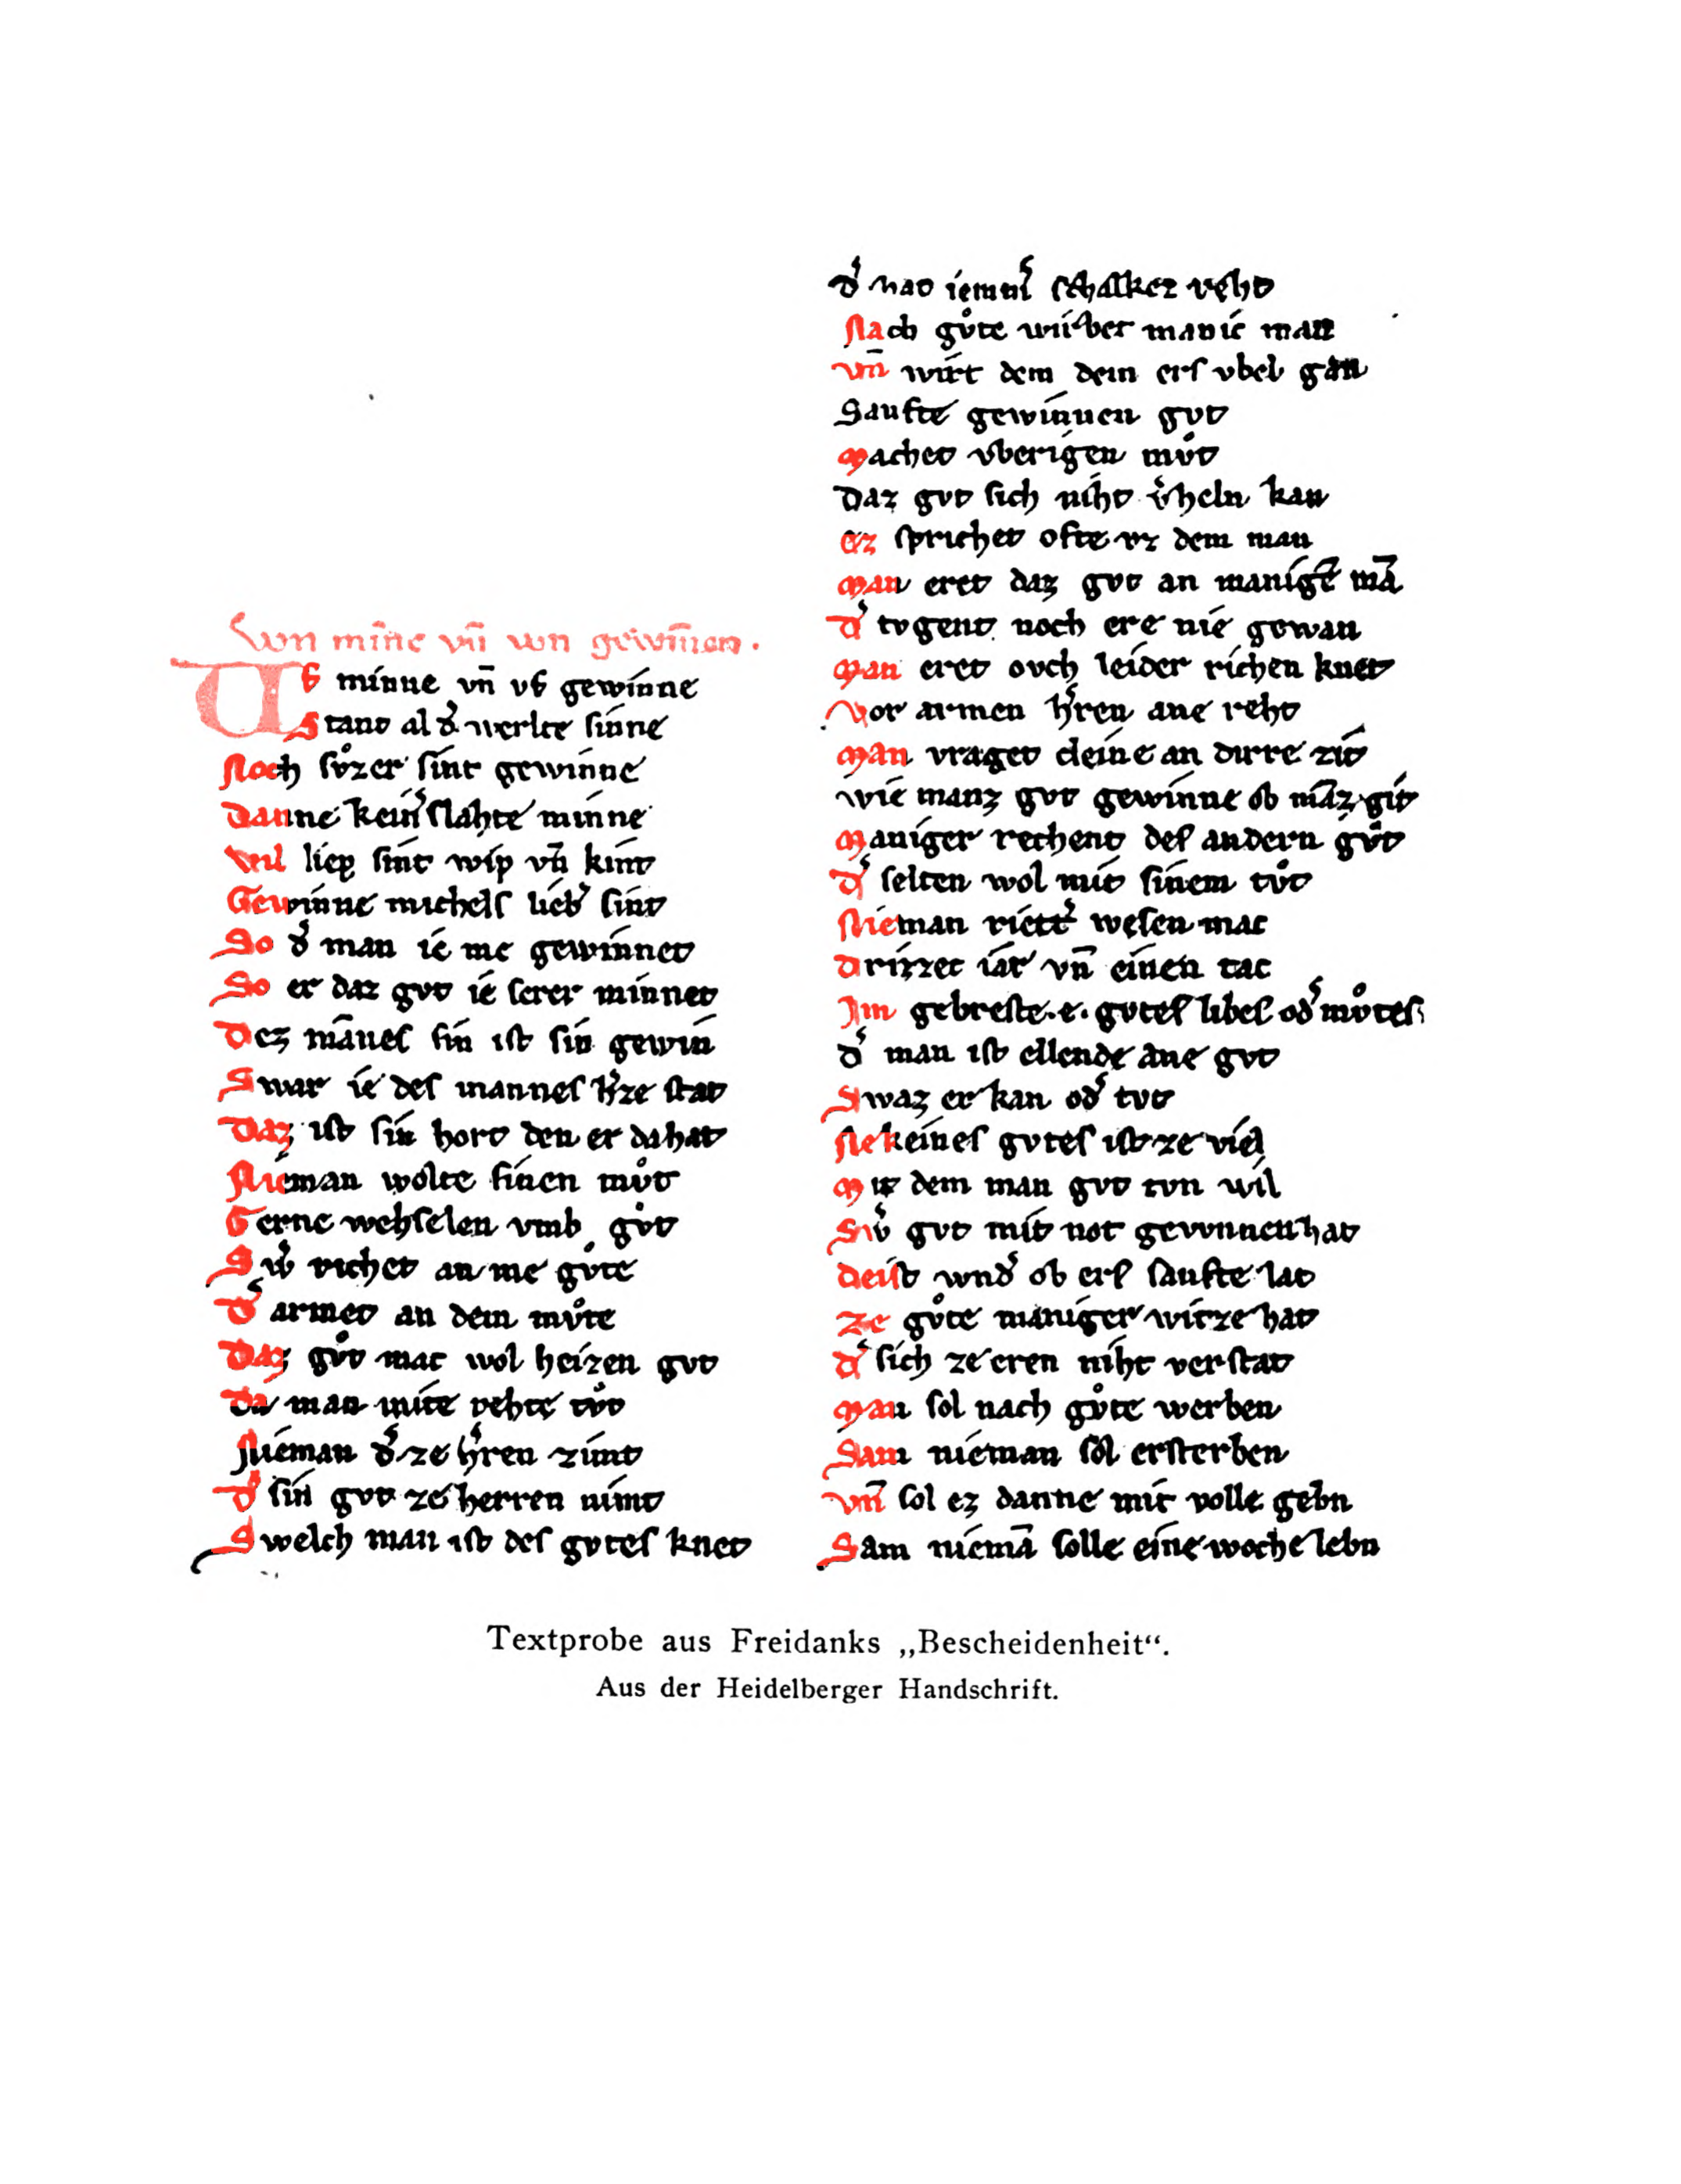 Von mīne vn̄ von gewīnen.
Vf minne vn̄ vf gewinne
Stant al d͛ werlte sinne
Noch svͦzer sint gewinne
Danne kein͛ slahte minne
Wil liep sint wip vn̄ kint
Gewinne michels lieb͛ sint
So d͛ man ie me gewinnet
So er daz gvt ie serer minnet
Dez mānes sin ist sin gewin
Swar ie des mannes h͛ze stat
Daz ist sin hort den er da hat
Nieman wolte sinen mvͦt
Gerne wehselen vmb gvͦt
Sw͛ richet an me gvͦte
D͛ armet an dem mvͦte
Daz gvͦt mac wol heizen gvt
Da man mite rehte tvͦt
Nieman d͛ ze h͛ren zimt
D͛ sin gvt ze herren nimt
Swelch man ist des gvtes knet
d͛ hat iemm͛ schalkez reht
Nach gvͦte wirbet manic man
vn̄ wirt dem dem ers vbel gan
Saufte gewinnen gvt
Machet vberigen mvͦt
Daz gvt sich niht v͛heln kan
ez sprichet ofte vz dem man
Man eret daz gvt an manigē mā
D͛ tvgent noch ere nie gewan
Man eret ovch leider richen knet
Vor armen h͛ren ane reht
Man vraget cleine an dirre zit
wie manz gvt gewinne ob māz git
Maniger rechent des andern gvͦt
D͛ selten wol mit sinem tvͦt
Nieman riett͛ wesen mac
Drizzec iar vn̄ einen tac
Im gebreste.e.gvtes libes od͛ mvͦtes
D͛ man ist ellende ane gvt
Swaz er kan od͛ tvt
Nekeines gvtes ist ze viel
Mit dem man gvt tvn wil
Sw͛ gvt mit not gewnnen hat
Deist wnd͛ ob ers saufte lat
Ze gvͦte maniger witze hat
D͛ sich ze eren niht verstat
Man sol nach gvͦte werben
Sam nieman sol ersterben
vn̄ sol ez danne mit volle gebn
Sam niemā solle eine woche lebn
Textprobe aus Freidanks „Bescheidenheit“.
Aus der Heidelberger Handschrift.